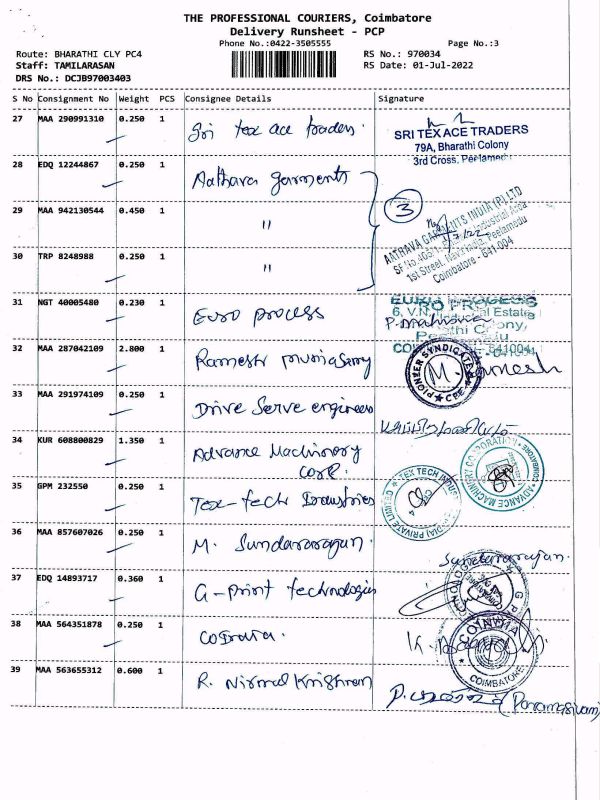 THE PROFESSIONAL COURIERS, Coimbatore
Delivery Runsheet - PCP
Phone No.:0422-3505555 Page No.:3
Route: BHARATHI CLY PC4 RS No.: 970034
Staff: TAMILARASAN RS Date: 01-Jul-2022
DRS No.: DCJB97003403
S No Consignment No Weight PCS Consignee Details Signature
27 MAA 290991310 0.250 1 Sri tex ace traders.
SRI TEXACE TRADERS
79A, Bharathi Colony
3rd Cross, Peelamedu
28 EDQ 12244867 0.250 1 Aathava garments
3
29 MAA 942130544 0.450 1 "
AATHAVA GARMENTS INDIA (P) LTD
1st Street, Nava India, Peelamedu
Coimbatore - 641 004
30 TRP 8248988 0.250 1 "
31 NGT 40005480 0.230 1 Euro process
EURO PROCESS
6, V.N. Industrial Estate
Bharathi Colony,
Peelamedu
32 MAA 287042109 2.800 1 Ramesh Munisamy
PIONEER SYNDICATE
CPE-4
Ramesh
33 MAA 291974109 0.250 1 Drive Serve engineers
34 KUR 608800829 1.350 1 Advance Machinery
Corp.
ADVANCE MACHINERY CORPORATION
COIMBATORE
35 GPM 232550 0.250 1 Tex-tech Industries
TEX TECH INDUS (INDIA) PRIVATE LIMITED
36 MAA 857607026 0.250 1 M. Sundararajan.
Sundararajan.
37 EDQ 14893717 0.360 1 G-print technologies
38 MAA 564351878 0.250 1 Coindia.
COINDIA
COIMBATORE
39 MAA 563655312 0.600 1 R. Nirmal Krishnan
(Paramasivam)